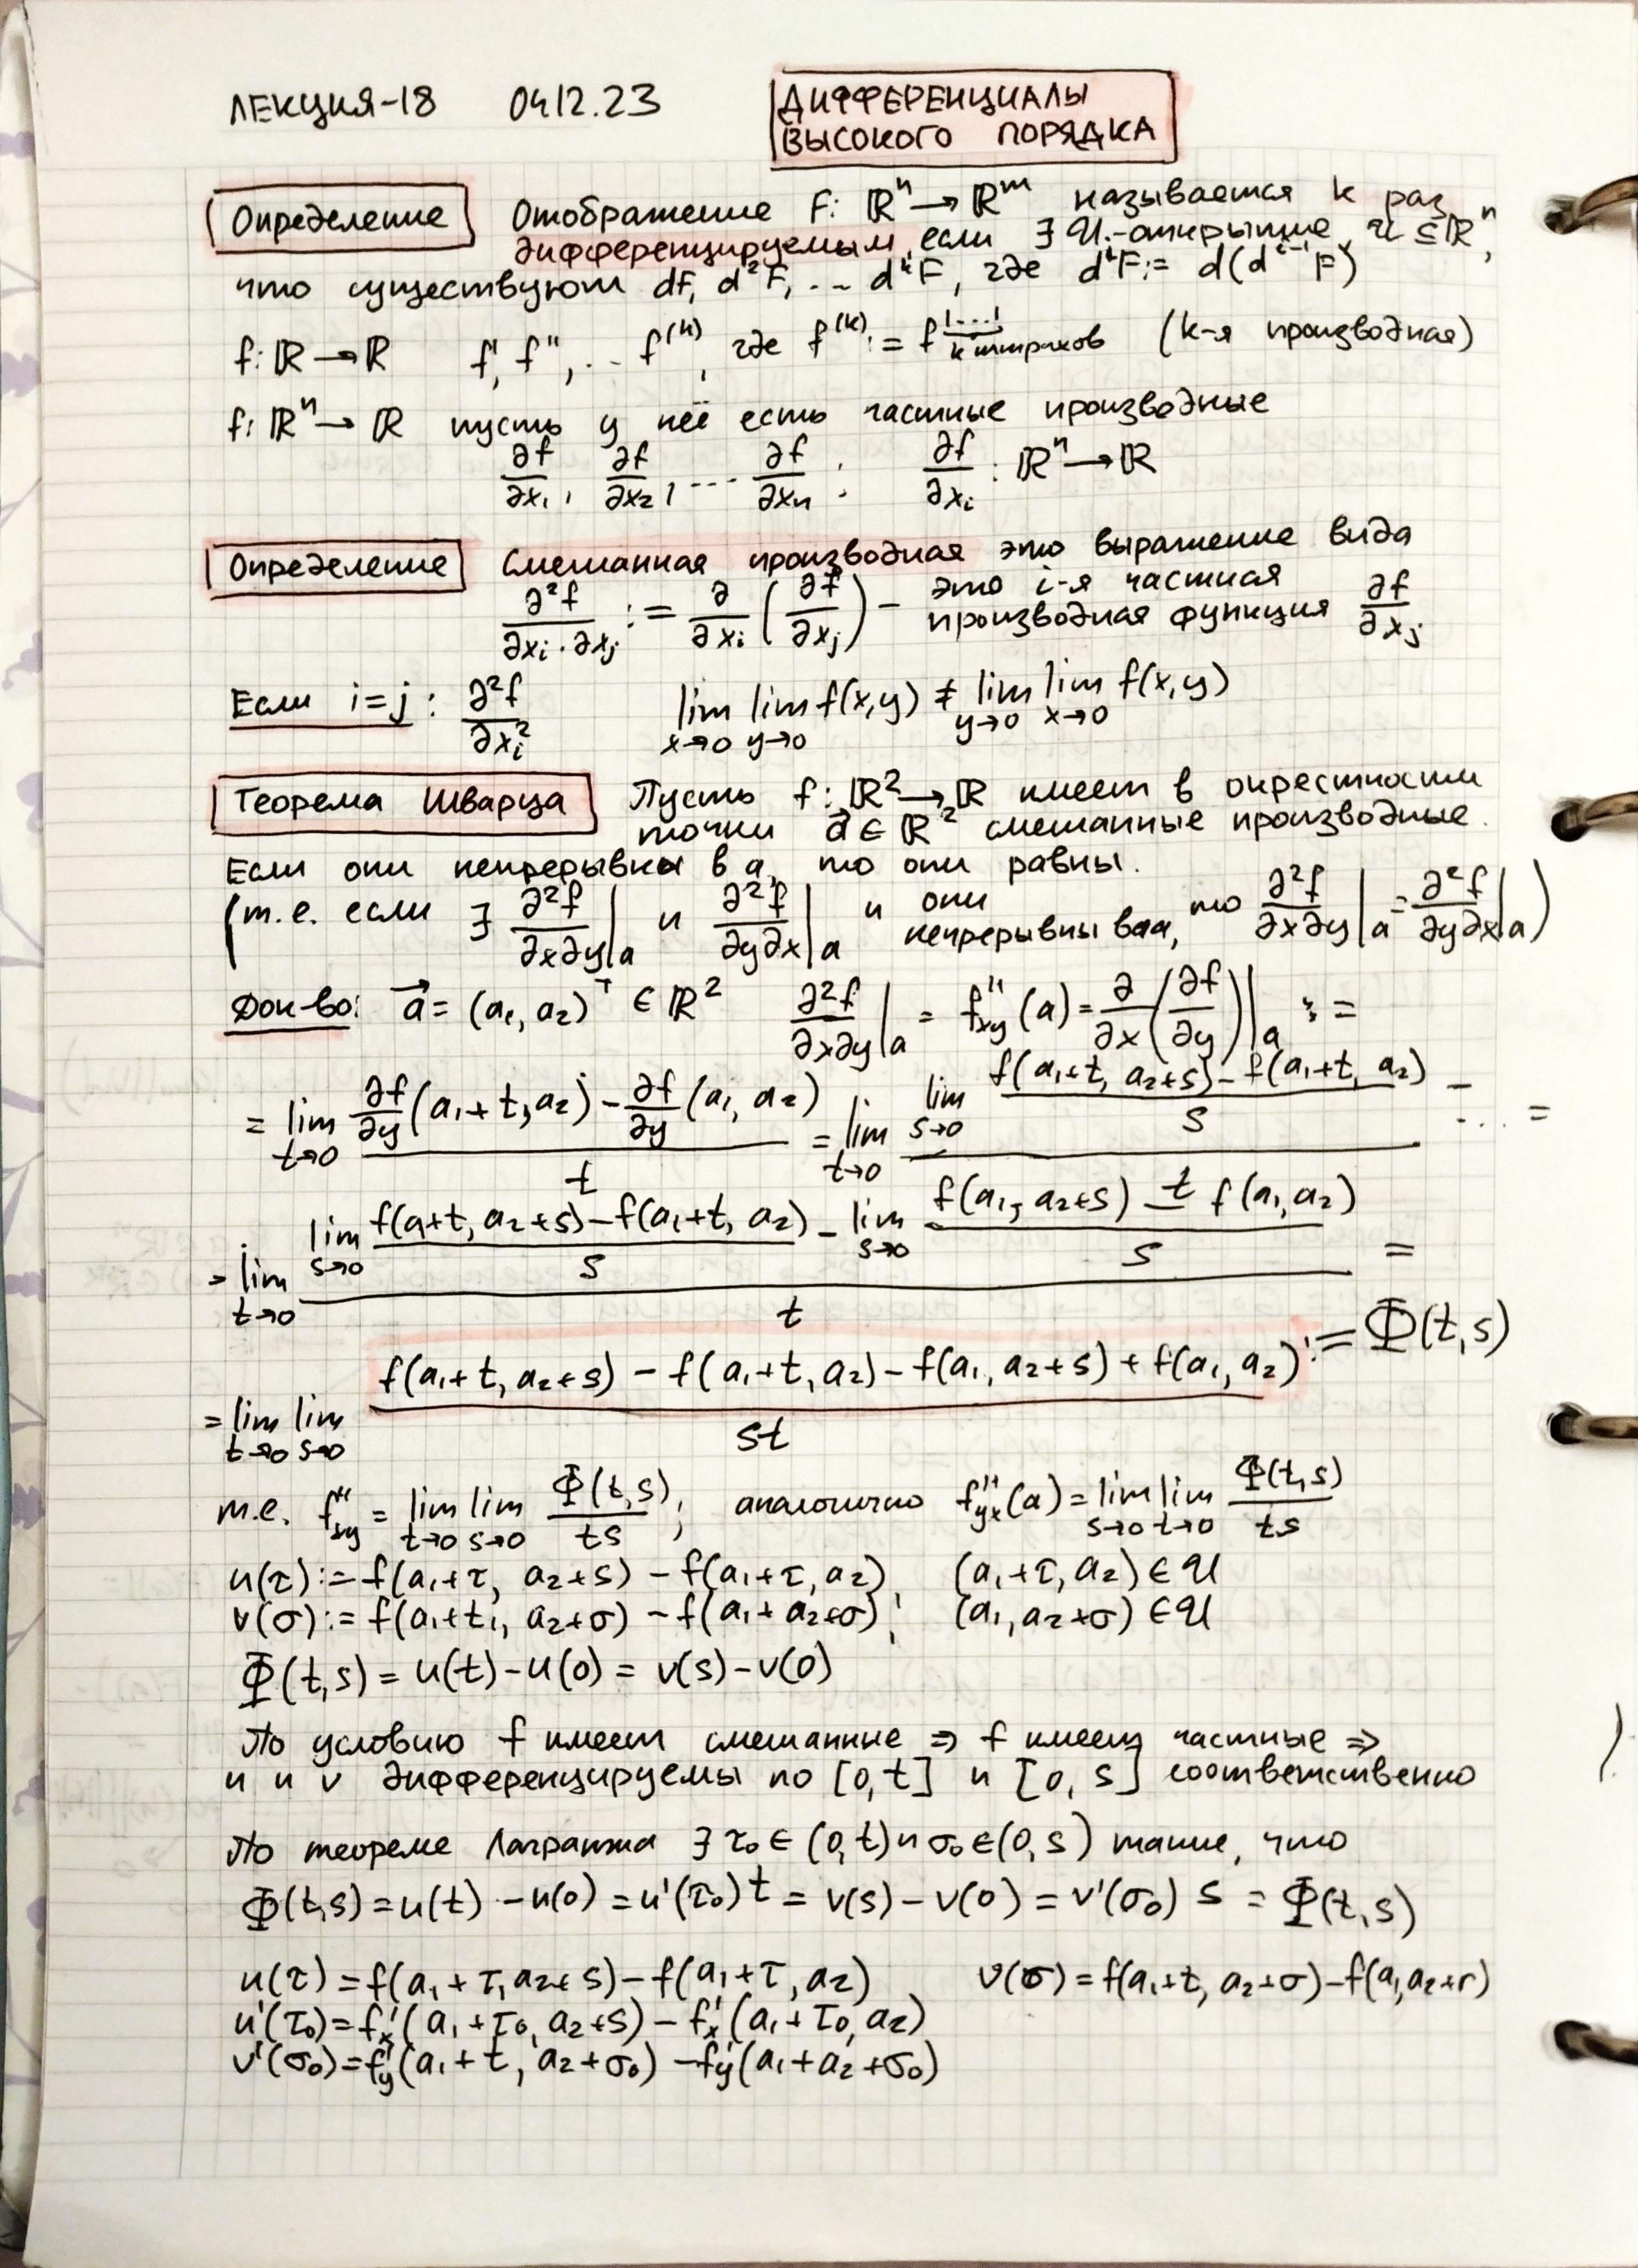 ЛЕКЦИЯ-18 04.12.23 ДИФФЕРЕНЦИАЛЫ
ВЫСОКОГО ПОРЯДКА
Определение Отображение F: ℝⁿ → ℝᵐ называется k раз
дифференцируемым, если ∃ 𝒰-открытые 𝒰 ⊆ ℝⁿ,
что существуют dF, d²F, ... dᵏF, где dᵏF := d(dᵏ⁻¹F)
f: ℝ → ℝ f', f'', ... f⁽ᵏ⁾, где f⁽ᵏ⁾ := f^{|...|} k штрихов (k-я производная)
f: ℝⁿ → ℝ пусть у неё есть частные производные
∂f/∂x₁, ∂f/∂x₂, ... ∂f/∂xₙ; ∂f/∂xᵢ: ℝⁿ → ℝ
Определение Смешанная производная это выражение вида
∂²f/∂xᵢ·∂xⱼ := ∂/∂xᵢ (∂f/∂xⱼ) - это i-я частная производная функция ∂f/∂xⱼ
Если i=j: ∂²f/∂xᵢ² lim x→0 lim y→0 f(x,y) ≠ lim y→0 lim x→0 f(x,y)
Теорема Шварца Пусть f: ℝ² → ℝ имеет в окрестности
точки a⃗ ∈ ℝ² смешанные производные.
Если они непрерывны в a, то они равны.
(т.е. если ∃ ∂²f/∂x∂y|a и ∂²f/∂y∂x|a и они непрерывны в a, то ∂²f/∂x∂y|a = ∂²f/∂y∂x|a)
Док-во: a⃗ = (a₁, a₂)ᵀ ∈ ℝ² ∂²f/∂x∂y|a = f''xy(a) = ∂/∂x (∂f/∂y)|a :=
= lim t→0 (∂f/∂y (a₁+t, a₂) - ∂f/∂y (a₁, a₂))/t = lim t→0 (lim s→0 (f(a₁+t, a₂+s) - f(a₁+t, a₂))/s - ...)/t =
= lim t→0 (lim s→0 (f(a+t, a₂+s) - f(a₁+t, a₂))/s - lim s→0 (f(a₁, a₂+s) - f(a₁, a₂))/s)/t =
= lim t→0 lim s→0 (f(a₁+t, a₂+s) - f(a₁+t, a₂) - f(a₁, a₂+s) + f(a₁, a₂))/st := Φ(t,s)
т.е. f''xy = lim t→0 lim s→0 Φ(t,s)/ts; аналогично f''yx(a) = lim s→0 lim t→0 Φ(t,s)/ts
u(τ) := f(a₁+τ, a₂+s) - f(a₁+τ, a₂), (a₁+τ, a₂) ∈ 𝒰
v(σ) := f(a₁+t₁, a₂+σ) - f(a₁+a₂+σ); (a₁, a₂+σ) ∈ 𝒰
Φ(t,s) = u(t) - u(0) = v(s) - v(0)
По условию f имеет смешанные ⇒ f имеет частные ⇒
u и v дифференцируемы по [0,t] и [0,s] соответственно
По теореме Лагранжа ∃ τ₀ ∈ (0,t) и σ₀ ∈ (0,s) такие, что
Φ(t,s) = u(t) - u(0) = u'(τ₀) t = v(s) - v(0) = v'(σ₀) s = Φ(t,s)
u(τ) = f(a₁+τ, a₂+s) - f(a₁+τ, a₂) v(σ) = f(a₁+t, a₂+σ) - f(a₁, a₂+σ)
u'(τ₀) = f'x(a₁+τ₀, a₂+s) - f'x(a₁+τ₀, a₂)
v'(σ₀) = f'y(a₁+t, a₂+σ₀) - f'y(a₁+a₂+σ₀)